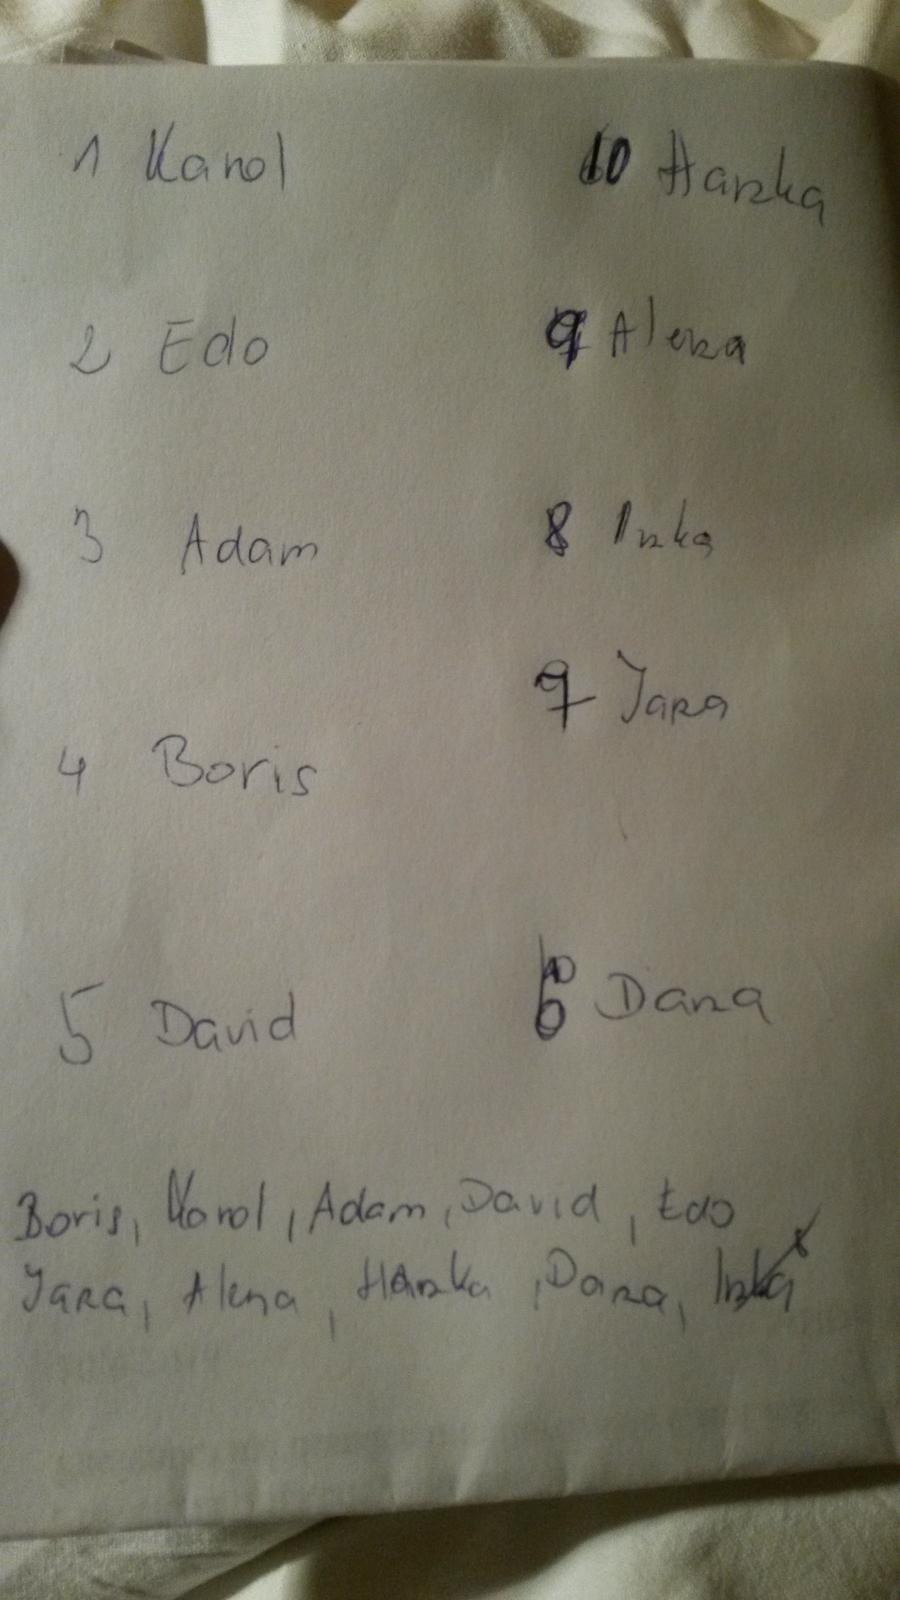 1 Karol
10 Hanka
2 Edo
9 Alena
3 Adam
8 Inka
7 Jana
4 Boris
6 Dana
5 David
Boris, Karol, Adam, David, Edo
Jana, Alena, Hanka, Dana, Inka